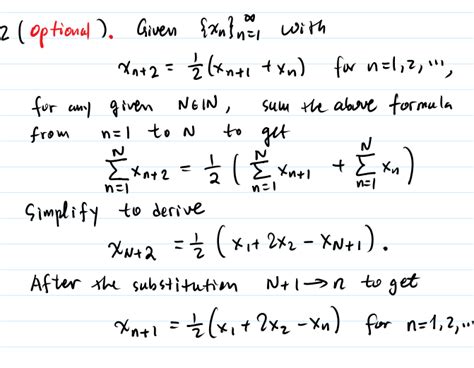 2 (optional). Given {xₙ}ₙ₌₁^∞ with
xₙ₊₂ = ½(xₙ₊₁ + xₙ) for n=1,2,⋯,
for any given N∈ℕ, sum the above formula
from n=1 to N to get
∑ₙ₌₁^N xₙ₊₂ = ½ (∑ₙ₌₁^N xₙ₊₁ + ∑ₙ₌₁^N xₙ)
Simplify to derive
x_{N+2} = ½ (x₁ + 2x₂ − x_{N+1}).
After the substitution N+1 → n to get
xₙ₊₁ = ½(x₁ + 2x₂ − xₙ) for n=1,2,⋯